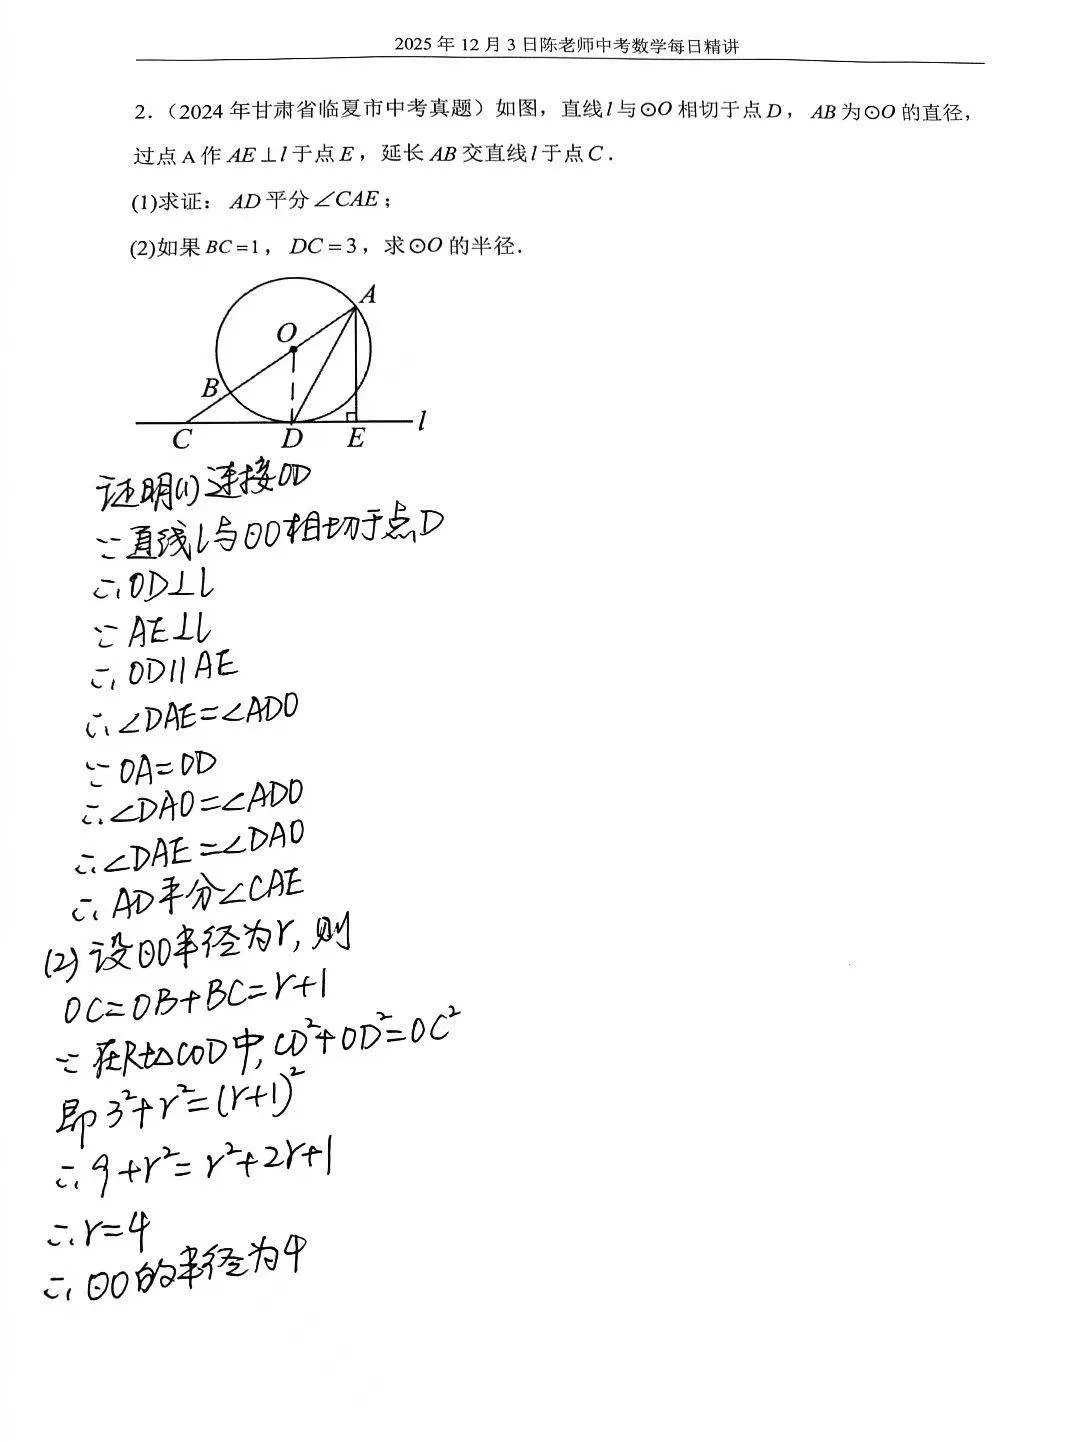 2025年12月3日陈老师中考数学每日精讲
2.（2024年甘肃省临夏市中考真题）如图，直线l与⊙O相切于点D，AB为⊙O的直径，
过点A作AE⊥l于点E，延长AB交直线l于点C．
(1)求证：AD平分∠CAE；
(2)如果BC=1，DC=3，求⊙O的半径．
A
O
B
C D E l
证明(1)连接OD
∵直线l与⊙O相切于点D
∴OD⊥l
∵AE⊥l
∴OD∥AE
∴∠DAE=∠ADO
∵OA=OD
∴∠DAO=∠ADO
∴∠DAE=∠DAO
∴AD平分∠CAE
(2)设⊙O半径为r,则
OC=OB+BC=r+1
∵在Rt△COD中,CD²+OD²=OC²
即3²+r²=(r+1)²
∴9+r²=r²+2r+1
∴r=4
∴⊙O的半径为4